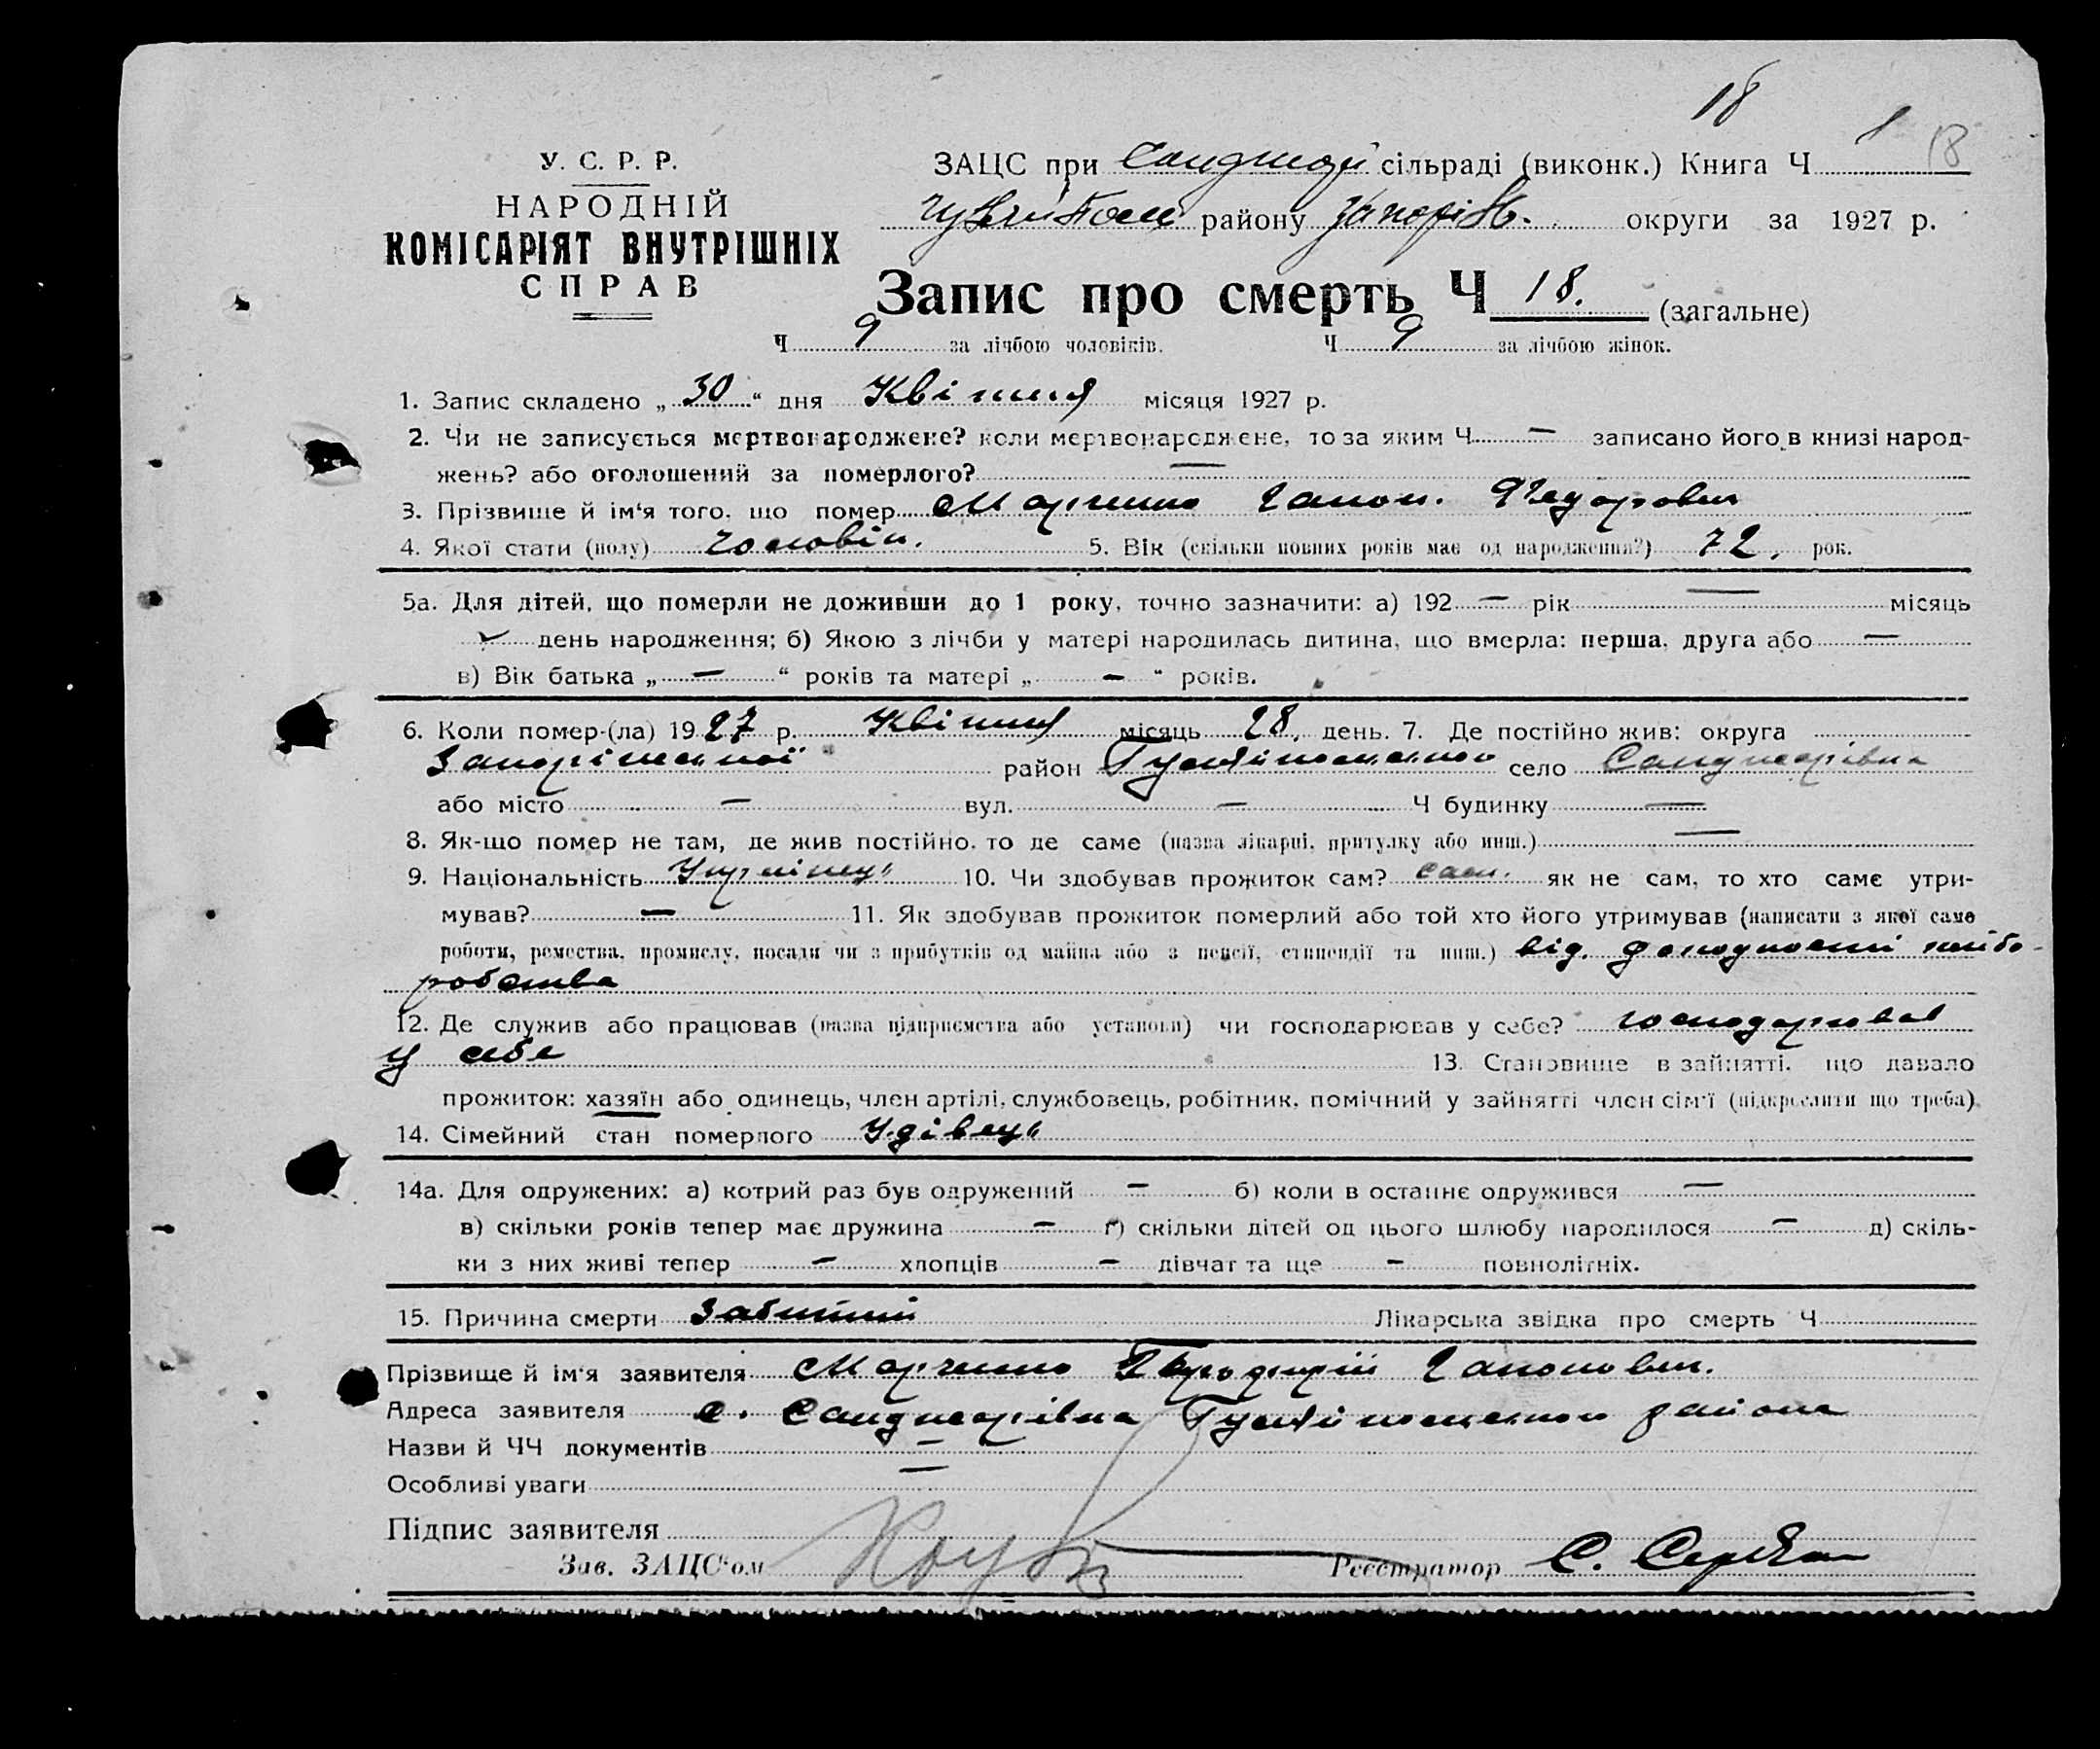 18
У. С. Р. Р.
НАРОДНІЙ
КОМІСАРІЯТ ВНУТРІШНІХ
СПРАВ
ЗАЦС при сільраді (виконк.) Книга Ч 1 18
району Запоріж. округи за 1927 р.
Запис про смерть Ч 18. (загальне)
Ч 9 за лічбою чоловіків. Ч 9 за лічбою жінок.
1. Запис складено „ 30 “ дня Квітня місяця 1927 р.
2. Чи не записується мертвонароджене? коли мертвонароджене, то за яким Ч — записано його в книзі народ-
жень? або оголошений за померлого? —
3. Прізвище й ім'я того, що помер Марченко Гапон. Федорович
4. Якої стати (полу) чоловіч. 5. Вік (скільки повних років має од народження?) 72. рок.
5а. Для дітей, що померли не доживши до 1 року, точно зазначити: а) 192 — рік — місяць
день народження; б) Якою з лічби у матері народилась дитина, що вмерла: перша, друга або —
в) Вік батька „ — “ років та матері „ — “ років.
6. Коли помер-(ла) 1927 р. Квітня місяць 28. день. 7. Де постійно жив: округа
Запоріжської район село
або місто — вул. — Ч будинку —
8. Як-що помер не там, де жив постійно, то де саме (назва лікарні, притулку або инш.) —
9. Національність Українець 10. Чи здобував прожиток сам? сам. як не сам, то хто саме утри-
мував? — 11. Як здобував прожиток померлий або той хто його утримував (написати з якої саме
роботи, ремества, промислу, посади чи з прибутків од майна або з пенсії, стипендії та инш.) від. доходности хлібо-
робства
12. Де служив або працював (назва підприємства або установи) чи господарював у себе? господарював
у себе 13. Становище в зайнятті, що давало
прожиток: хазяїн або одинець, член артілі, службовець, робітник, помічний у зайнятті член сім'ї (підкреслити що треба)
14. Сімейний стан померлого Удівець
14а. Для одружених: а) котрий раз був одружений — б) коли в останнє одружився —
в) скільки років тепер має дружина — г) скільки дітей од цього шлюбу народилося — д) скіль-
ки з них живі тепер — хлопців — дівчат та ще — повнолітніх.
15. Причина смерти Забитий Лікарська звідка про смерть Ч
Прізвище й ім'я заявителя Марченко Гапонович.
Адреса заявителя с. района
Назви й ЧЧ документів —
Особливі уваги —
Підпис заявителя
Зав. ЗАЦС'ом Реєстратор С.